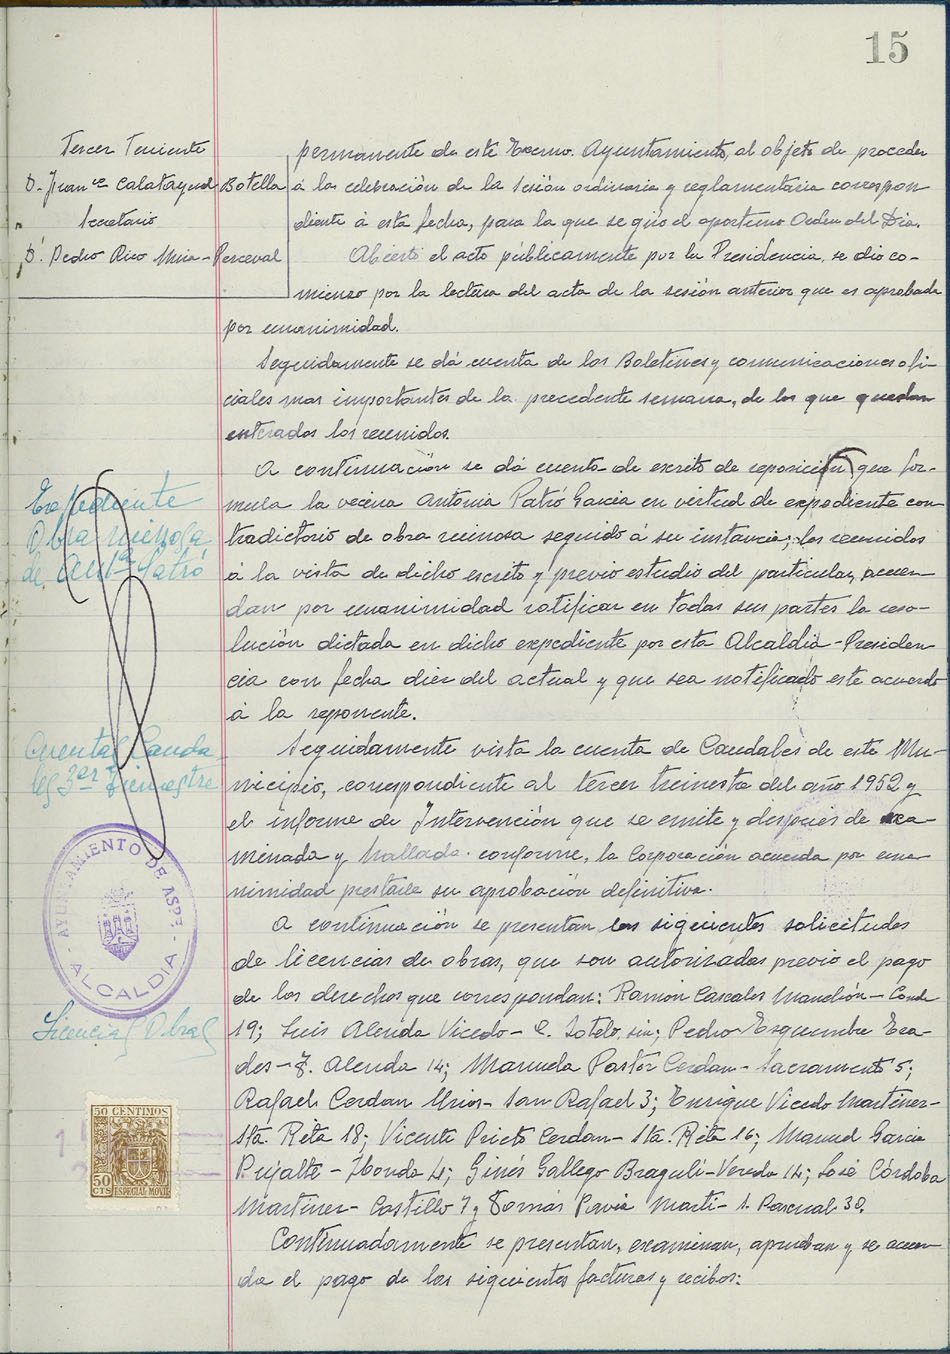 15
Tercer Teniente
D. Franco Calatayud Botella
Secretario
D. Pedro Rico Mira-Perceval
permanente de este Excmo. Ayuntamiento, al objeto de proceder
á la celebración de la sesión ordinaria y reglamentaria correspon-
diente á esta fecha, para la que se giró el oportuno Orden del Día.
Abierto el acto públicamente por la Presidencia, se dio co-
mienzo por la lectura del acta de la sesión anterior que es aprobada
por unanimidad.
Seguidamente se dá cuenta de los Boletines y comunicaciones ofi-
ciales mas importantes de la precedente semana, de los que quedan
enterados los reunidos.
A continuación se dá cuenta de escrito de reposición que for-
mula la vecina Antonia Patró Garcia en virtud de expediente con
tradictorio de obra ruinosa seguido á su instancia; los reunidos
á la vista de dicho escrito y previo estudio del particular, acuer-
dan por unanimidad ratificar en todas sus partes la reso-
lución dictada en dicho expediente por esta Alcaldía-Presiden-
cia con fecha diez del actual y que sea notificado este acuerdo
á la reponente.
Expediente
Obra ruinosa
de Antª Patró
Seguidamente vista la cuenta de Caudales de este Mu-
nicipio, correspondiente al tercer trimestre del año 1952 y
el informe de Intervención que se emite y después de exa-
minada y hallada conforme, la Corporación acuerda por una-
nimidad prestarle su aprobación definitiva.
Cuentas Cauda
les 3er Trimestre
AYUNTAMIENTO DE ASPE
- ALCALDIA -
A continuación se presentan las siguientes solicitudes
de licencias de obras, que son autorizadas previo el pago
de los derechos que correspondan: Ramón Cascales Manchón- Conde
19; Luis Alenda Vicedo- C. Sotelo, sin; Pedro Esquembre Era-
des- J. Alenda 14; Manuela Pastor Cerdan- Sacramento 5;
Rafael Cerdan Urios- San Rafael 3; Enrique Vicedo Martinez-
Sta. Rita 18; Vicente Prieto Cerdan- Sta. Rita 16; Manuel Garcia
Pujalte- Honda 4; Ginés Gallego Braguli- Vereda 14; José Córdoba
Martinez- Castillo 7 y Tomás Pavia Marti- S. Pascual 30.
Licencias Obras
50 CENTIMOS
50
CTS
ESPECIAL MOVIL
Continuadamente se presentan, examinan, aprueban y se acuer-
da el pago de las siguientes facturas y recibos: